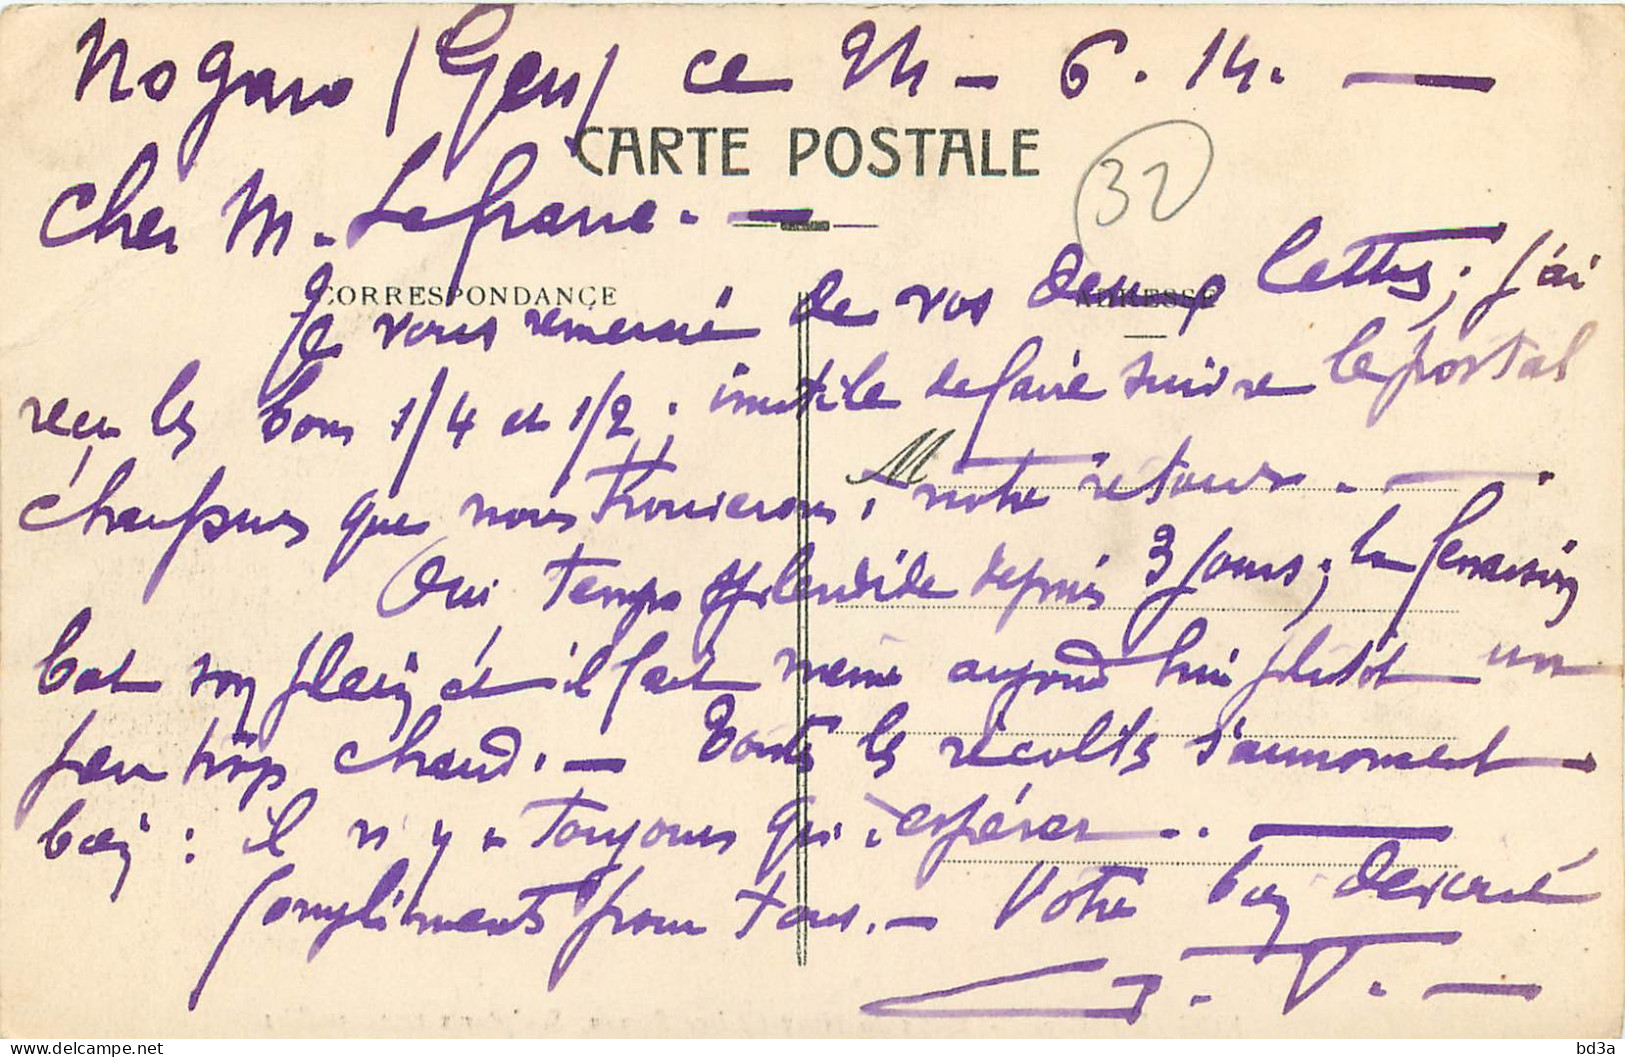 Nogaro (Gers) ce 24 - 6. 14. —
CARTE POSTALE
32
Cher M. Lefranc. —
CORRESPONDANCE
ADRESSE
Je vous remercie de vos deux lettres; j'ai
reçu les bons 1/4 et 1/2; inutile de faire suivre le postal
M
chaussures que nous trouverons à notre retour. —.
Oui temps splendide depuis 3 jours; la fenaison
bat son plein et il fait même aujourd'hui plutôt un
peu trop chaud. — Toutes les récoltes s'annoncent
bien: il n'y a toujours qu'à espérer.. —
Compliments pour tous. — Votre bien dévoué
bd3a